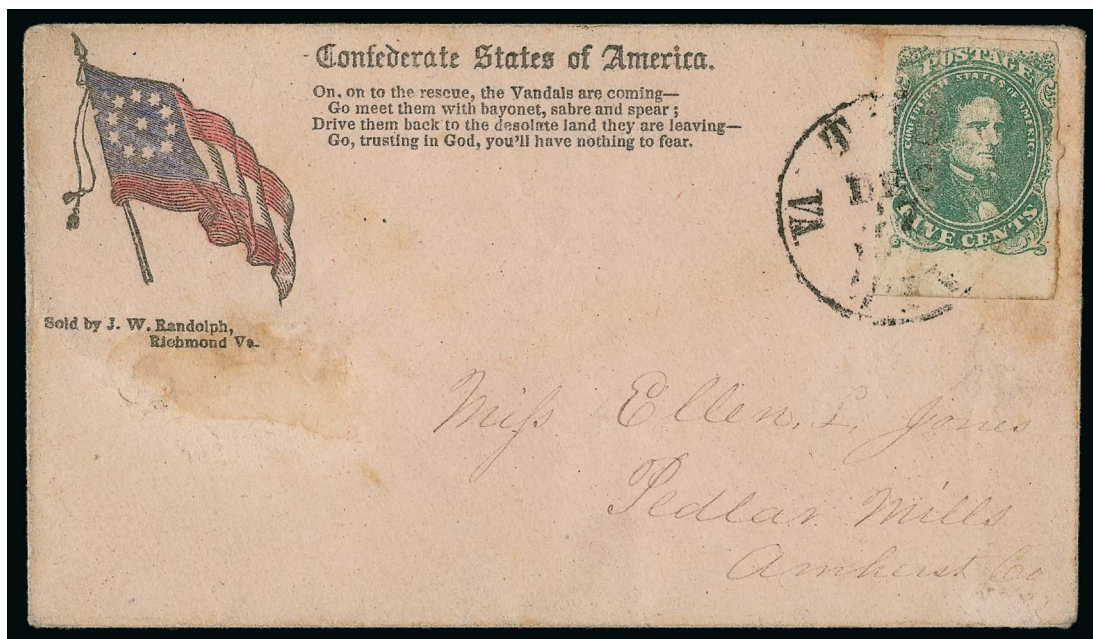 Confederate States of America.
On, on to the rescue, the Vandals are coming—
Go meet them with bayonet, sabre and spear ;
Drive them back to the desolate land they are leaving—
Go, trusting in God, you'll have nothing to fear.
Sold by J. W. Randolph,
Richmond Va.
POSTAGE
CONFEDERATE STATES OF AMERICA
FIVE CENTS
DEC
VA
Miss Ellen, L, Jones
Pedlar Mills
Amherst Co